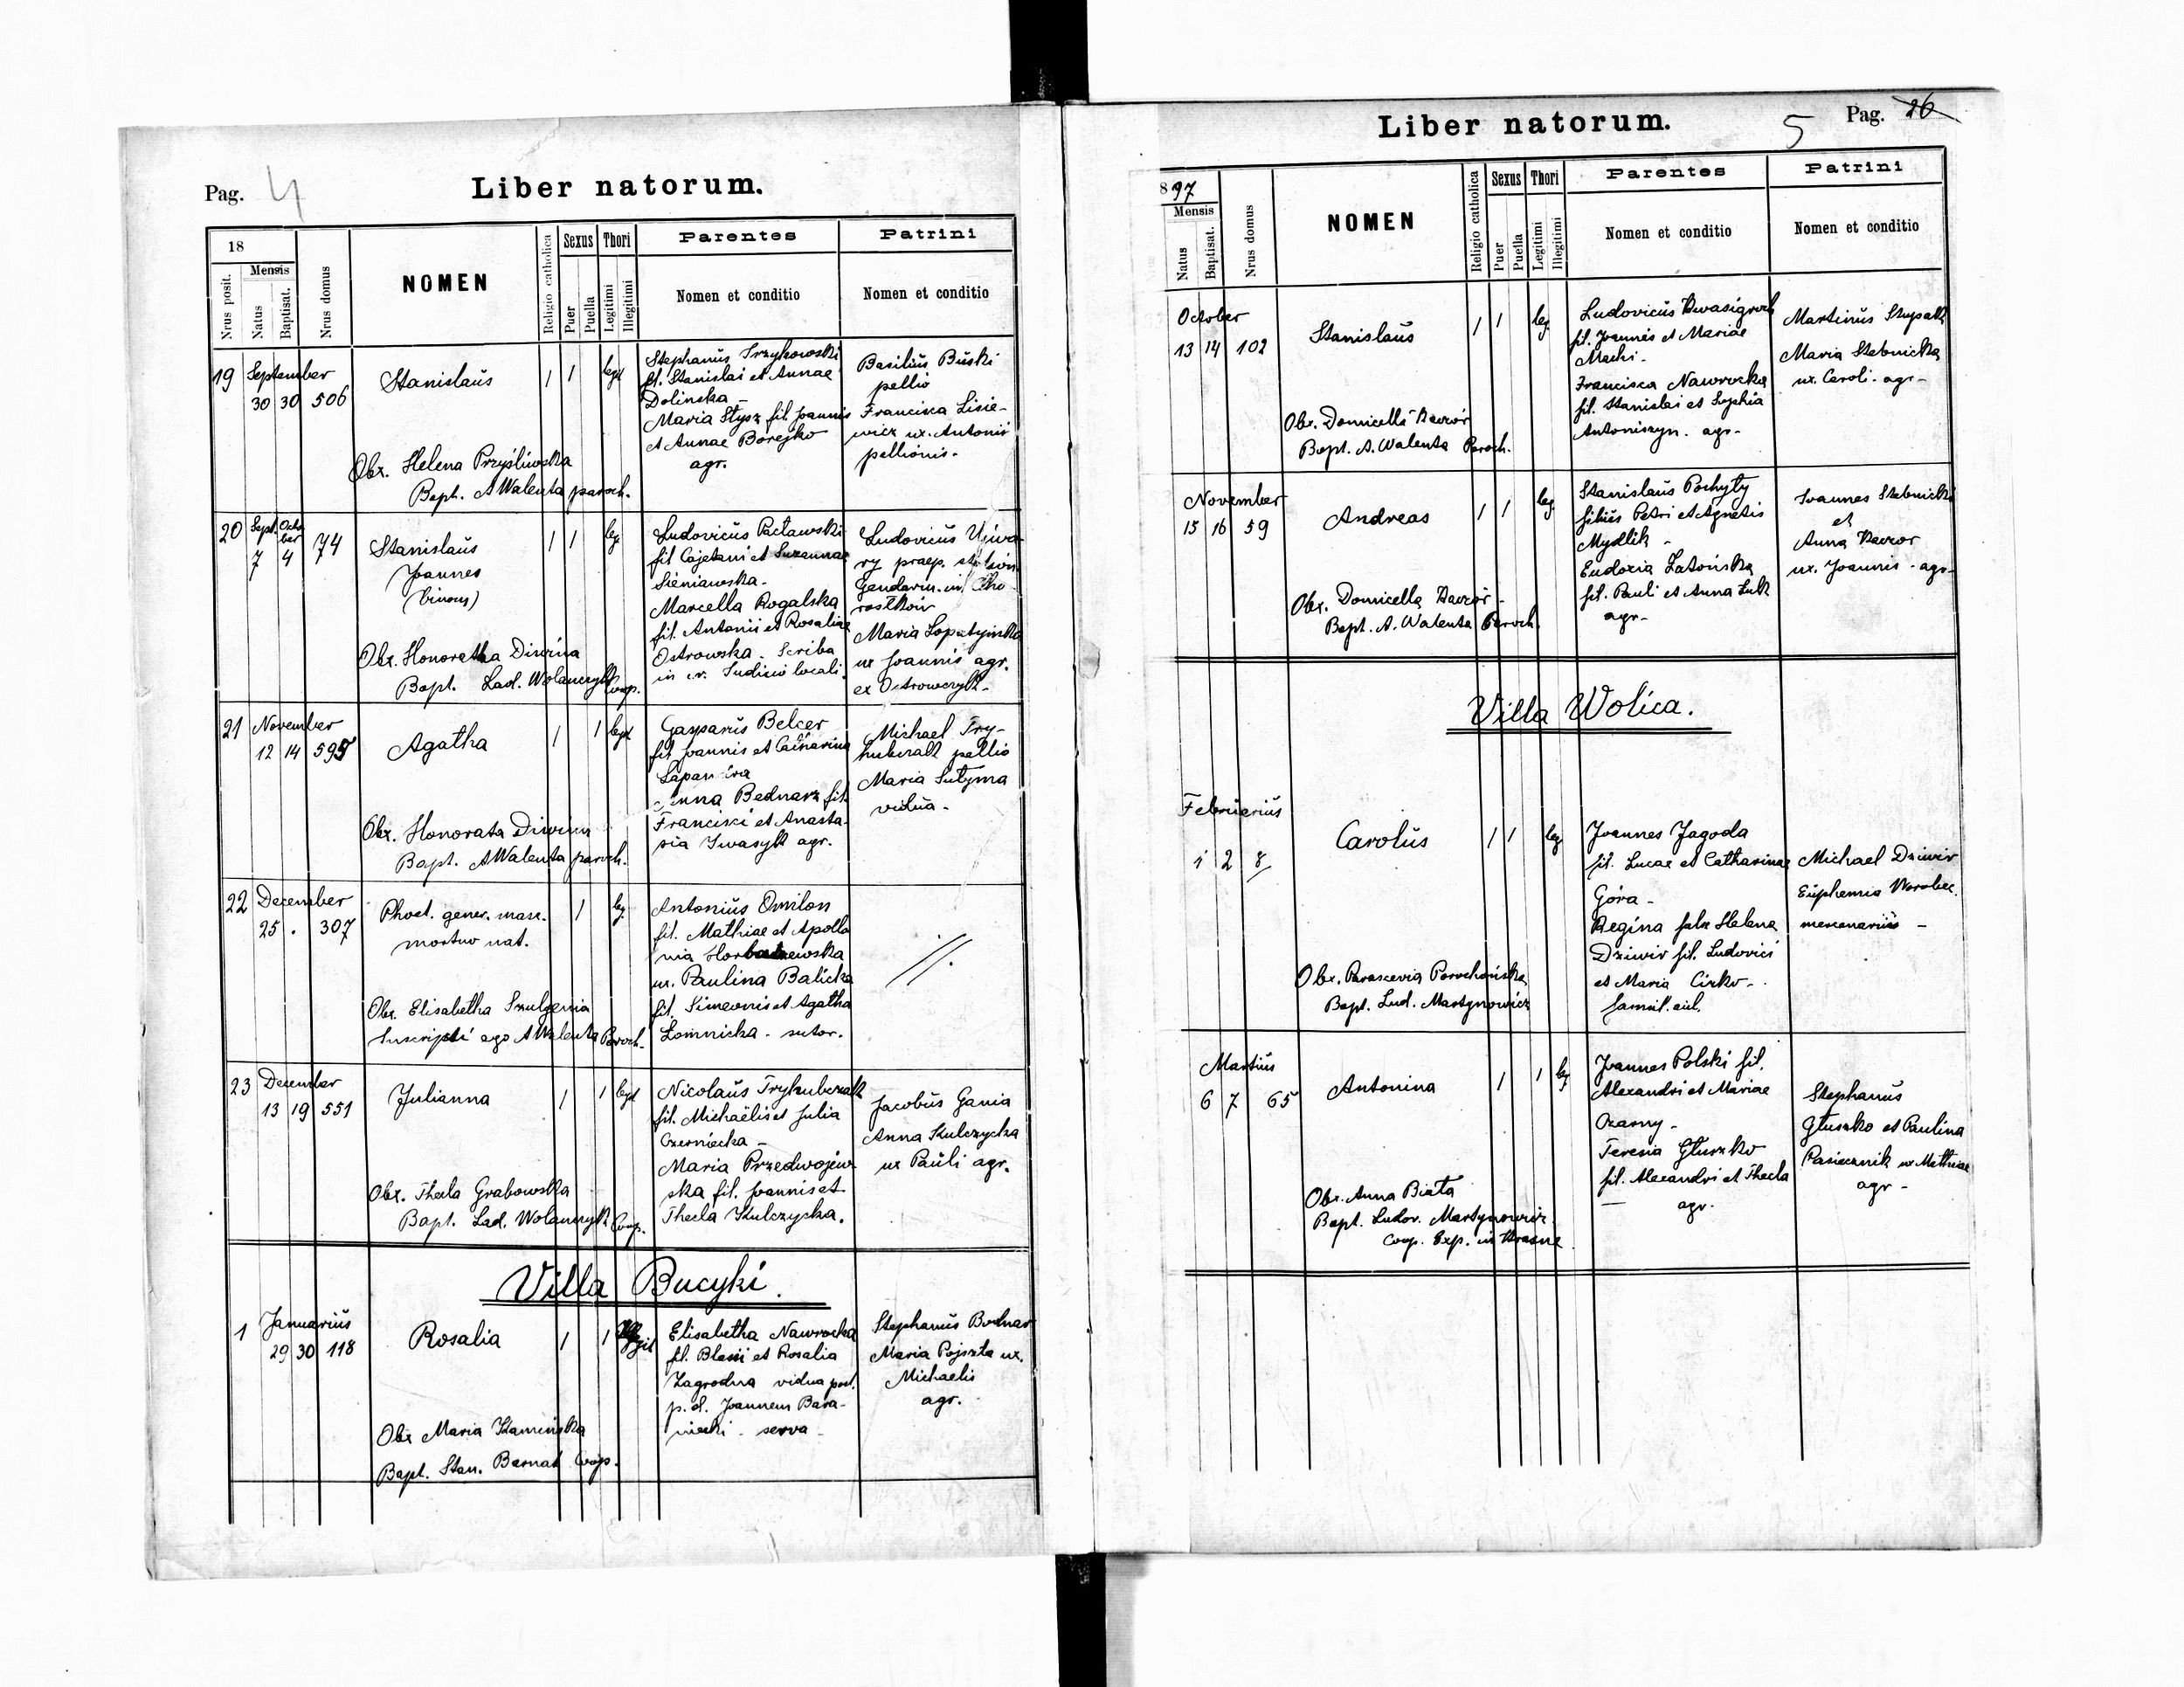 Pag. 4
Liber natorum.
18
Nrus posit.
Mensis
Natus
Baptisat.
Nrus domus
NOMEN
Religio catholica
Sexus
Puer
Puella
Thori
Legitimi
Illegitimi
Parentes
Nomen et conditio
Patrini
Nomen et conditio
19 September
30 30 506
Stanislaus
1 1 legt
Stephanus
fil. Stanislai et Annae
Dolinska -
Maria Stysz fil. Joannis
et Annae Borejko
agr.
Basilius Buski
pellio
Francisca Lisie-
wicz ux. Antonii
pellionis.
Obx. Helena Przyśliwska
Bapt. A Walenta paroch.
20 Sept. Octo
ber
7 4 74
Stanislaus
Joannes
(binom)
1 1 leg
Ludovicus Pacławski
fil Cajetani et Suzannae
Sieniawska -
Marcella Rogalska
fil. Antonii et Rosaliae
Ostrowska - Scriba
in c.r. Judicio locali.
Ludovicus
ry praep.
Gendarm. in Cho
rostków
Maria Lopatyinska
ux Joannis agr.
ex Ostrowczyk -
Obx. Honoratha Diwina
Bapt. Lad. Wolanczyk Coop.
21 November
12 14 595
Agatha
1 1 legt
Gasparus Belcer
fil Joannis et Catharina
Anna Bednarz fil.
Francisci et Anasta-
sia Iwasyk agr.
Michael Try-
huberak pellio
Maria Sutyma
vidua -
Obx. Honorata Diwina
Bapt. A Walenta paroch.
22 December
25 . 307
Phoet. gener. masc.
mortuo nat.
1 leg
Antonius Omilon
fil. Mathiae et Apollo
nia
ux. Paulina Balicka
fil. Simeonis et Agatha
Łomnicka - sutor.
//.
Obx. Elisabetha Szulgenia
Suscripsi ego A Walenta Paroch.
23 December
13 19 551
Julianna
1 1 legt
Nicolaus Tryhuberak
fil. Michaelis et Julia
Czerniecka -
Maria Przedwojew
ska fil. Joannis et
Thecla Kulczycka.
Jacobus Gania
Anna Kulczycka
ux Pauli agr.
Obx. Thecla Grabowska
Bapt. Lad. Wolanczyk Coop.
Villa Bucyki.
1 Januarius
29 30 118
Rosalia
1 1
Elisabetha Nawrocka
fil. Blasii et Rosalia
Zagrodna vidua post.
p. d. Joannem Bara-
niecki - serva -
Stephanus Bodnar
Maria Pojszta ux.
Michaelis
agr.
Obx Maria Kamińska
Bapt. Stan. Barnat Coop.
Liber natorum.
5
Pag. 26
897
Mensis
Natus
Baptisat.
Nrus domus
NOMEN
Religio catholica
Sexus
Puer
Puella
Thori
Legitimi
Illegitimi
Parentes
Nomen et conditio
Patrini
Nomen et conditio
October
13 14 102
Stanislaus
1 1 leg
Ludovicus Kwasigroch
fil. Joannis et Mariae
Macki -
Francisca Nawrocka
fil. Stanislai et Sophia
Antoniszyn. agr -
Martinus Słupak
Maria Stebnicka
ux. Caroli. agr -
Obx. Domicella Kaczor
Bapt. A. Walenta Paroch.
November
15 16 59
Andreas
1 1 leg
Stanislaus Pochyty
filius Petri et Agnetis
Mydlik -
Eudoxia Zatońska
fil. Pauli et Anna Łuk
agr -
Ioannes Stebnicki
et
Anna Kaczor
ux. Joannis - agr -
Obx. Domicella Kaczor -
Bapt. A. Walenta Paroch.
Villa Wolica.
Februarius
1 2 8
Carolus
1 1 leg
Joannes Jagoda
fil. Lucae et Catharinae
Góra -
Regina Helena
Dziwir fil. Ludovici
et Maria Cirko -
famil. aul.
Michael Dziwir
Euphemia Worobec
mercenarius -
Obx. Parascevia Porochońska
Bapt. Lud. Martynowicz
Martius
6 7 65
Antonina
1 1 leg
Joannes Polski fil.
Alexandri et Mariae
Czarny -
Teresia Głuszko
fil. Alexandri et Thecla
— agr.
Stephanus
Głuszko et Paulina
Pasiecznik ux Mathiae
agr -
Obx. Anna Biała
Bapt. Ludov. Martynowicz
Coop. Exp. in Krasne